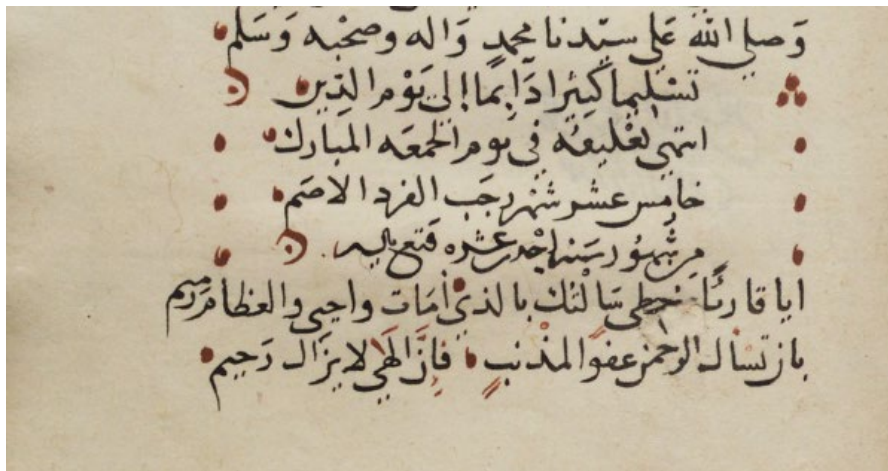 وَصلي الله عَلي سيّدنا محمدٍ وَاله وصحْبه وَسَلم
تسْليما كثيرا دَايمًا إلي يَوْم الدّين
انتهي تعْليقه في يَوم الجمعَه المبَارك
خامس عشر شهْر رجَب الفرد الاصَم
من شهُور سَنة احْدي عشره
ايا قارئًا خطي سَالتك بالذي أمَات واحيي والعظام رَميم
بان تسْال الرحمن عفو المذْنبٍ فانَّ الهَي لا يزَال رَحيم